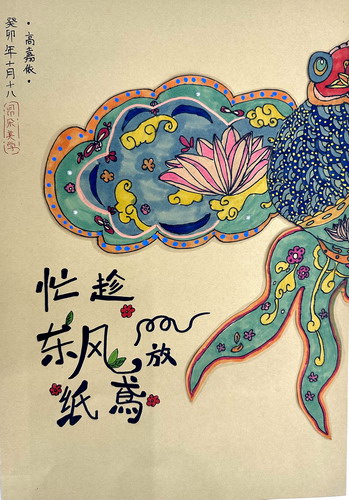 忙趁
东风放
纸鸢
·高嘉依·
癸卯年十月十八